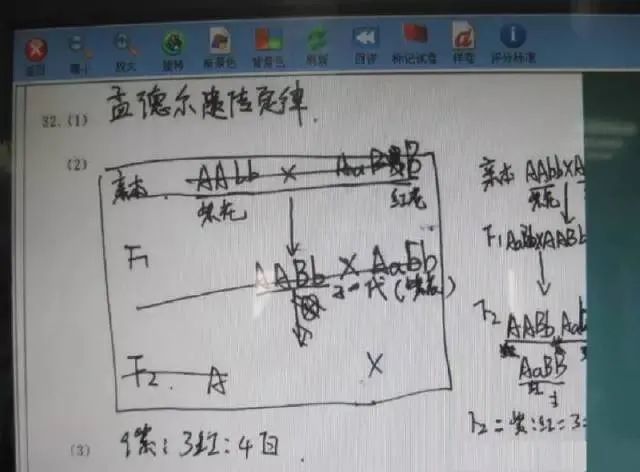 返回 缩小 放大 旋转 前景色 背景色 刷新 回评 标记试卷 样卷 评分标准
32.(1) 孟德尔遗传定律.
(2)
亲本 AAbb × AaBB
紫花 红花
F₁
AABb × AaBb
子一代(紫花)
⊗
F₂. A ×
亲本 AAbb×A
紫花
F₁ AaBb×AABb
F₂ AABb Aab
AaBB
红
F₂ = 紫:红=3:
(3) 9紫:3红:4白.